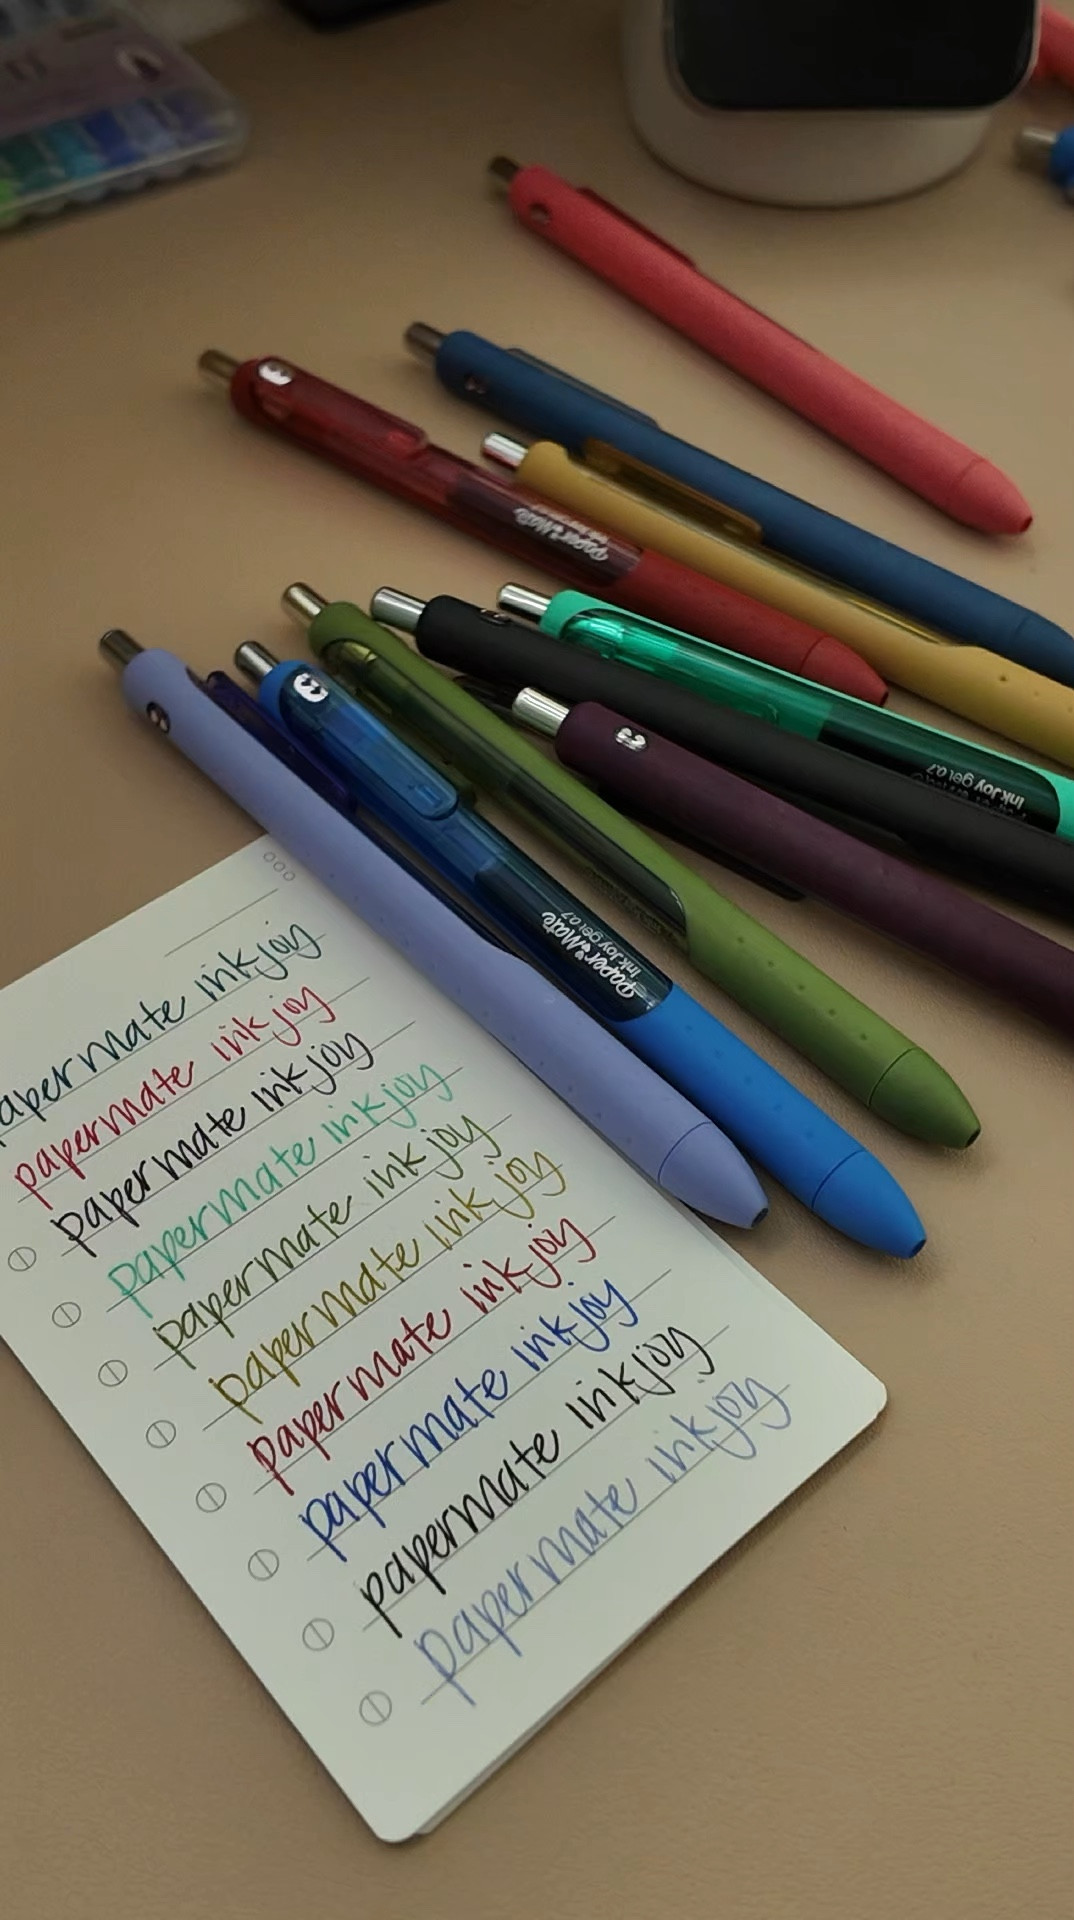 Paper Mate
InkJoy gel 0.7
InkJoy gel 0.7
Paper Mate
InkJoy gel 0.7
papermate inkjoy
papermate inkjoy
papermate inkjoy
papermate inkjoy
papermate inkjoy
papermate inkjoy
papermate inkjoy
papermate inkjoy
papermate inkjoy
papermate inkjoy